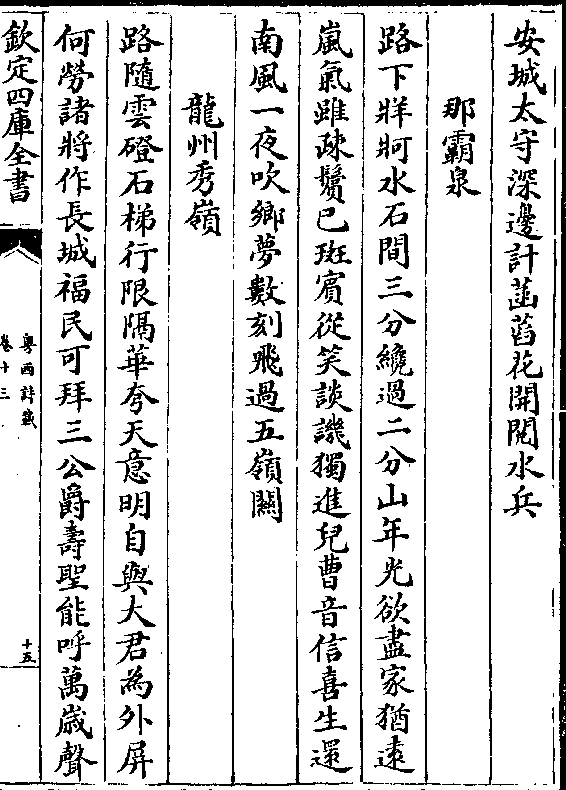 安城太守深邊計菡萏花開閱水兵
那霸泉
路下牂牁水石間三分纔過二分山年光欲盡家猶遠
嵐氣雖疎鬢已斑賓從笑談譏獨進兒曹音信喜生還
南風一夜吹鄉夢數刻飛過五嶺關
龍州秀嶺
路隨雲磴石梯行限隔華夸天意明自與大君為外屏
何勞諸將作長城福民可拜三公爵壽聖能呼萬歲聲
欽定四庫全書
粵西詩載
卷十三
十五